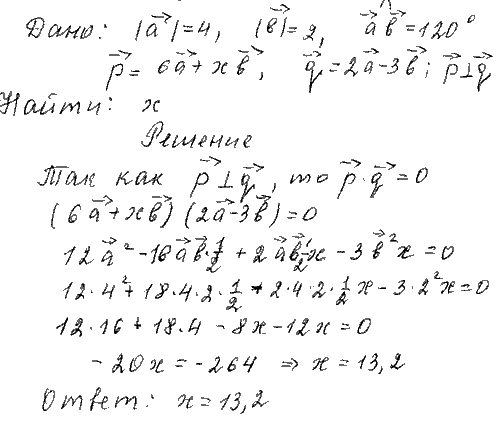 Дано: |a⃗|=4, |b⃗|=2, a⃗^b⃗=120°
p⃗ = 6a⃗+xb⃗, q⃗=2a⃗-3b⃗; p⃗⊥q⃗
Найти: x
Решение
Так как p⃗⊥q⃗, то p⃗·q⃗=0
(6a⃗+xb⃗)(2a⃗-3b⃗)=0
12a⃗²-18a⃗b⃗·1/2+2a⃗b⃗·1/2x-3b⃗²x=0
12·4²+18·4·2·1/2-2·4·2·1/2x-3·2²x=0
12·16+18·4-8x-12x=0
-20x=-264 ⇒ x=13,2
Ответ: x=13,2